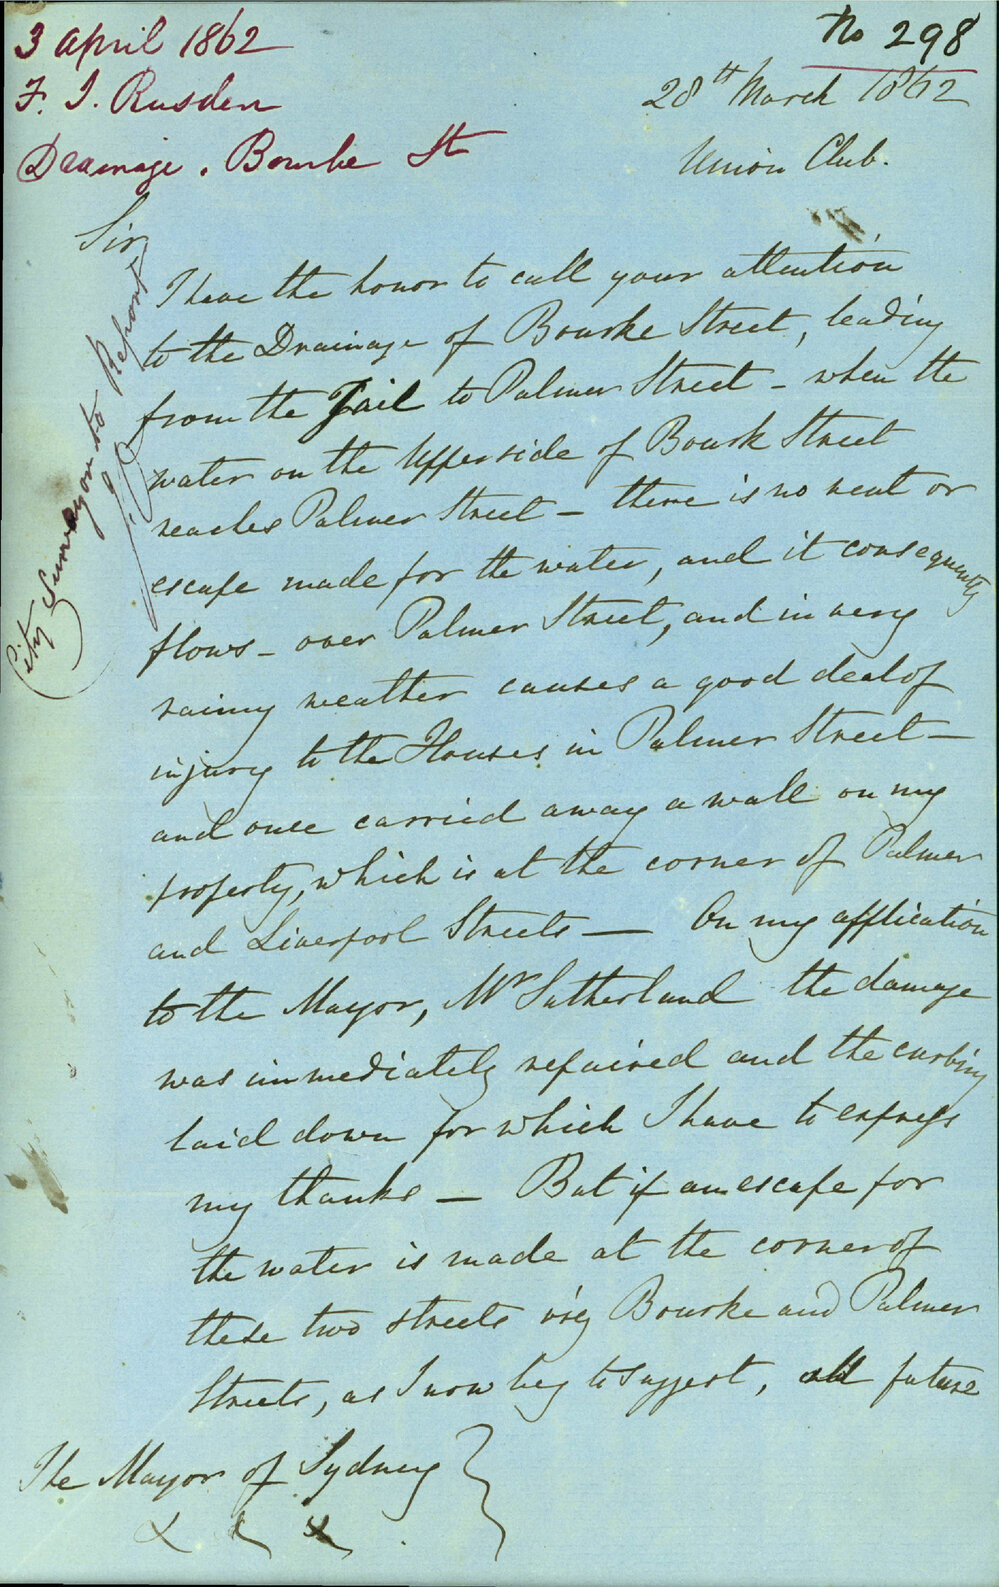 3 April 1862
F. T. Rusden
Drainage. Bourke St
No 298
28th March 1862
Union Club.
City Surveyor to Report
Sir
I have the honor to call your attention
to the Drainage of Bourke Street, leading
from the Jail to Palmer Street - when the
water on the Upperside of Bourk Street
reaches Palmer Street - there is no vent or
escape made for the water, and it consequently
flows - over Palmer Street, and in very
rainy weather causes a good deal of
injury to the Houses in Palmer Street -
and once carried away a wall on my
property, which is at the corner of Palmer
and Liverpool Streets - On my application
to the Mayor, Mr Sutherland the damage
was immediately repaired and the curbing
laid down for which I have to express
my thanks - But if an escape for
the water is made at the corner of
these two streets viz Bourke and Palmer
Streets, as I now beg to suggest, all future
The Mayor of Sydney